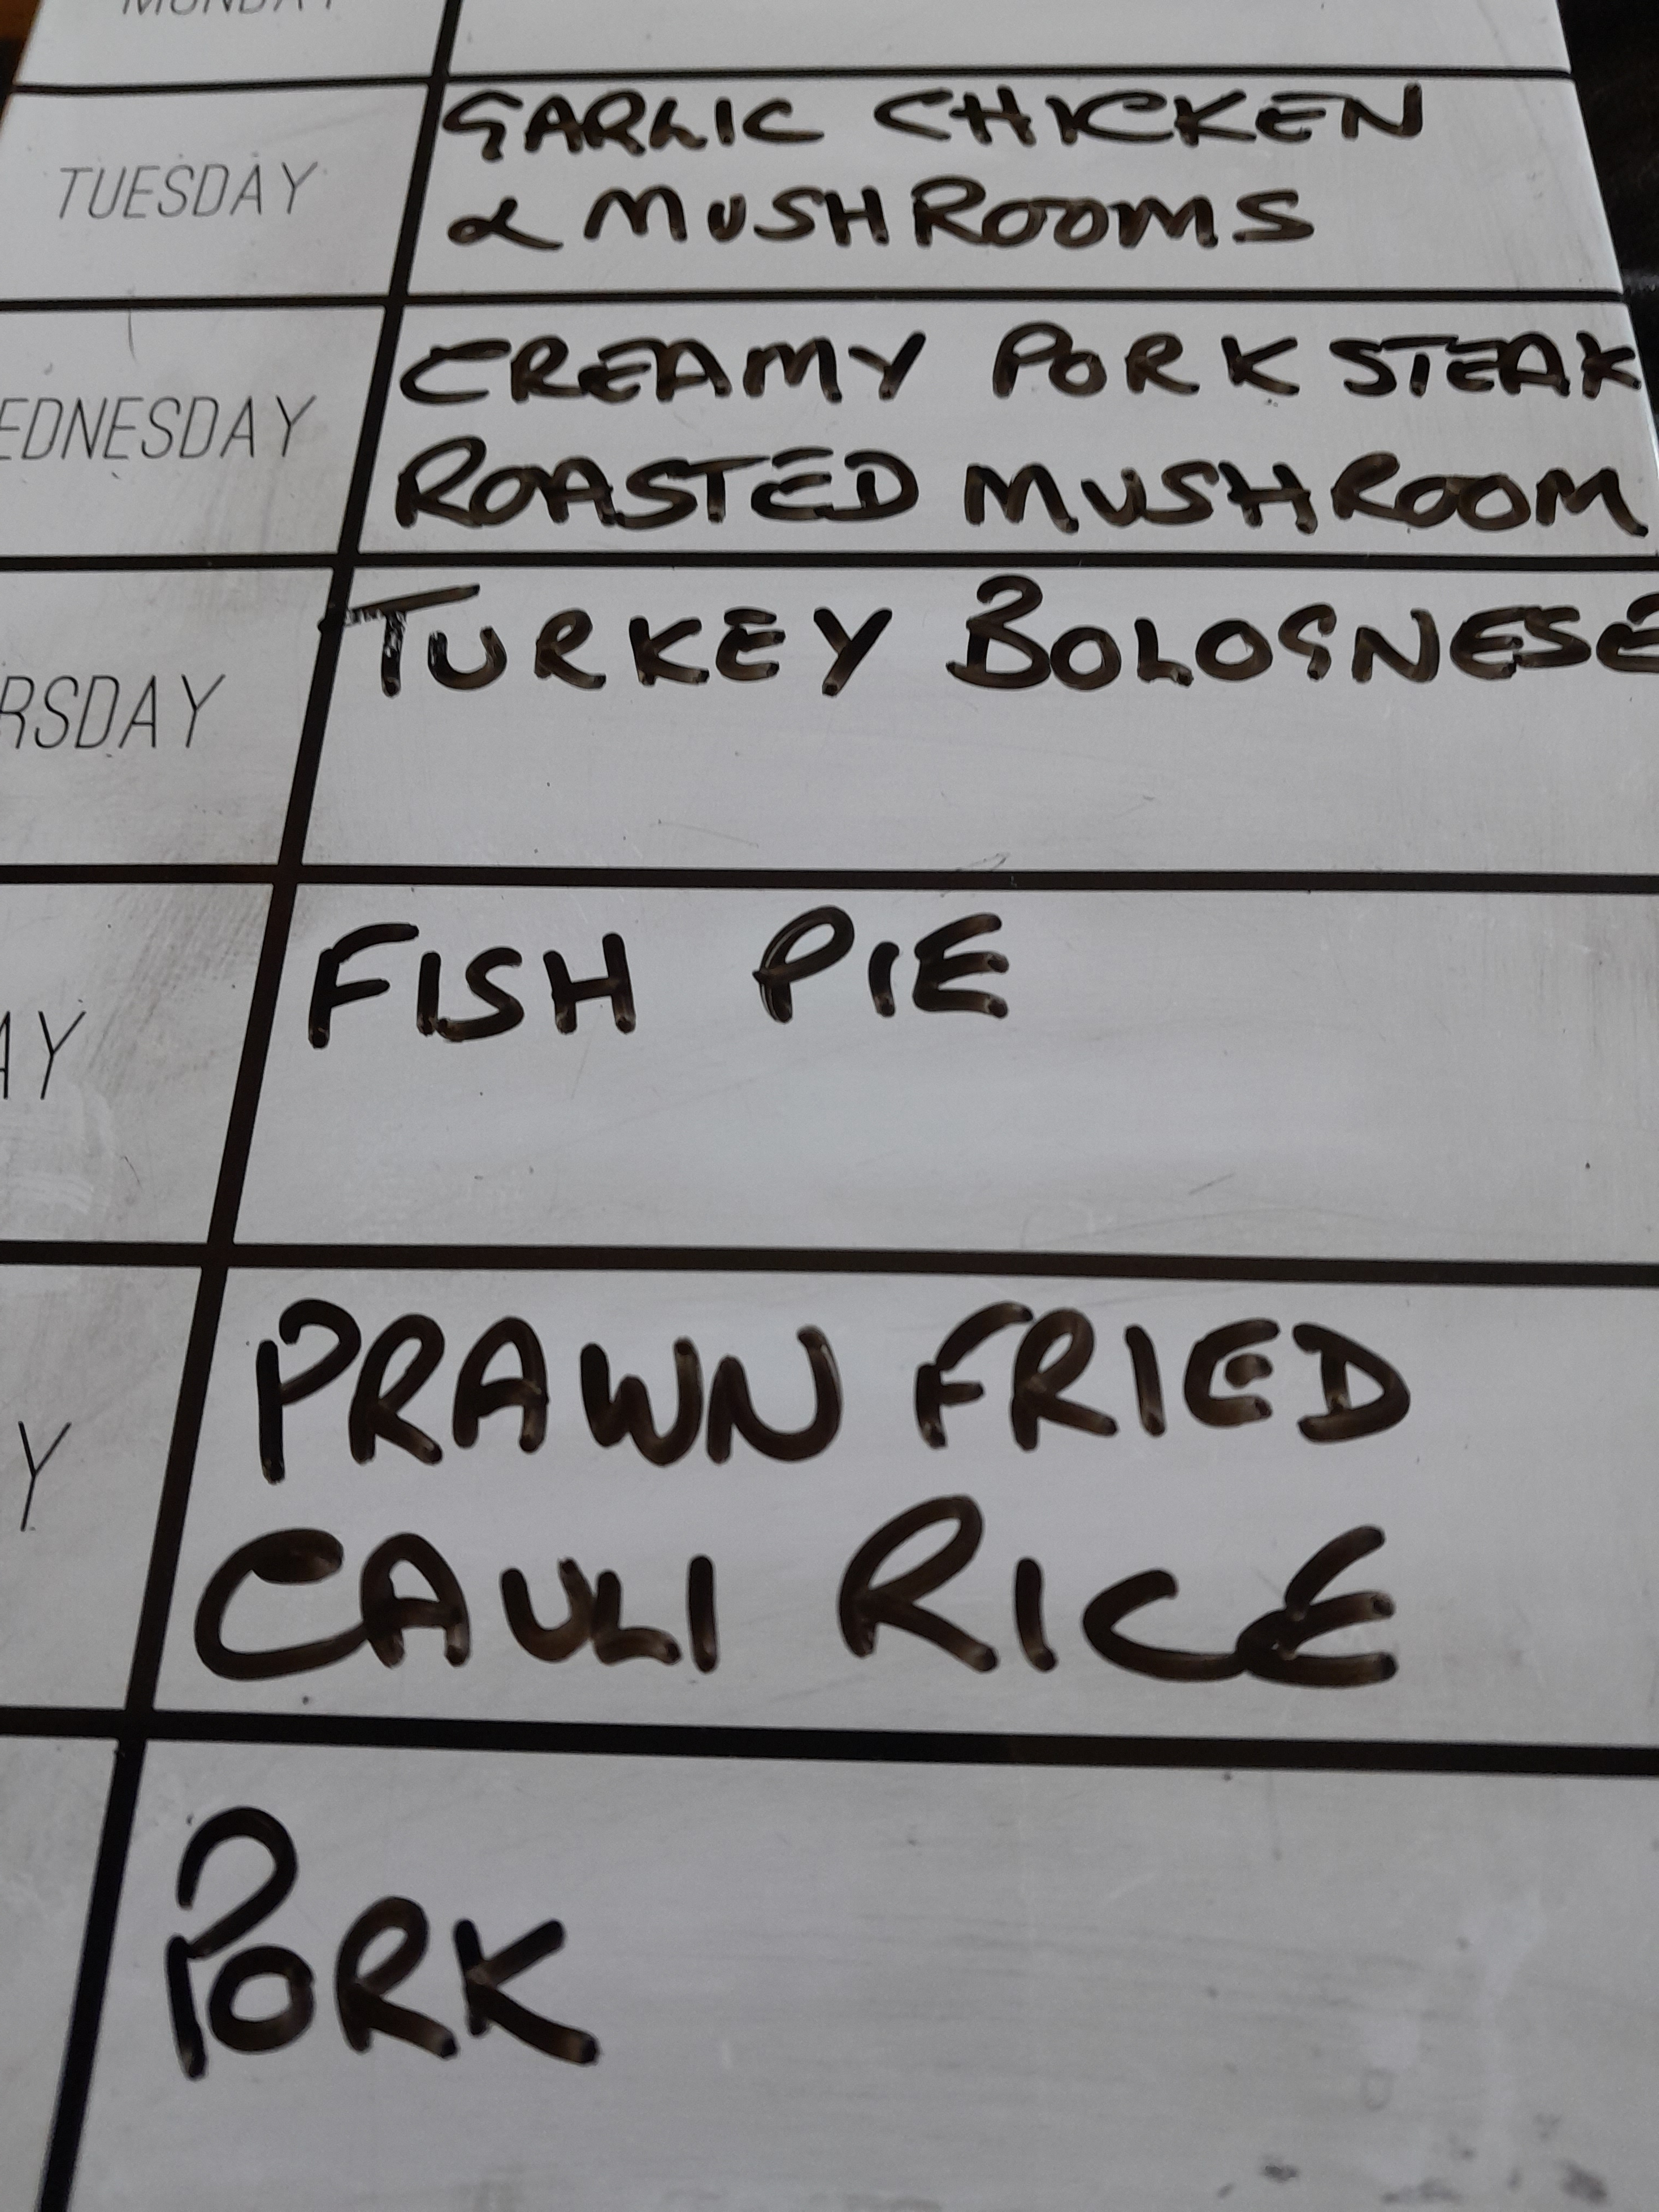 MONDAY
TUESDAY
GARLIC CHICKEN
& MUSHROOMS
EDNESDAY
CREAMY PORK STEAK
ROASTED MUSHROOM
RSDAY
TURKEY BOLOGNESE
AY
FISH PIE
Y
PRAWN FRIED
CAULI RICE
PORK